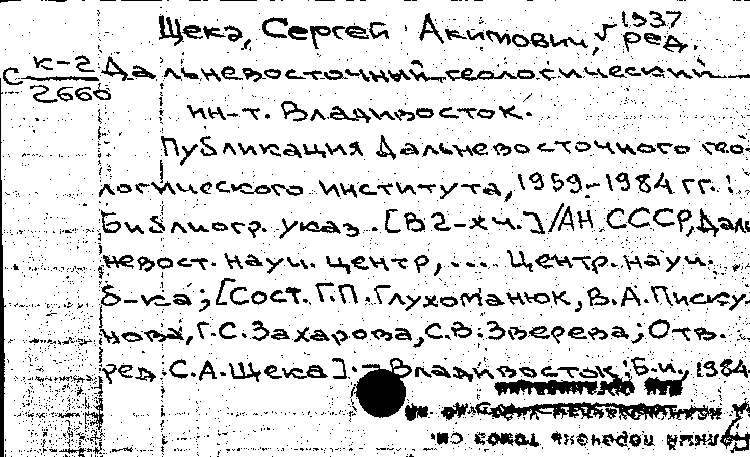 Щека, Сергей Акимович, 1937
ред.
С К-2 Дальневосточный геологический
2660
ин-т. Владивосток.
Публикация Дальневосточного гео-
логического института, 1959-1984 гг.:
Библиогр. указ. [В 2-х ч.]/АН СССР, Даль-
невост. науч. центр, ... Центр. науч.
б-ка; [Сост. Г.П. Глухоманюк, В.А. Писку-
нова, Г.С. Захарова, С.В. Зверева; Отв.
ред. С.А. Щека]. - Владивосток: Б.и., 1984
Полный перечень томов см.